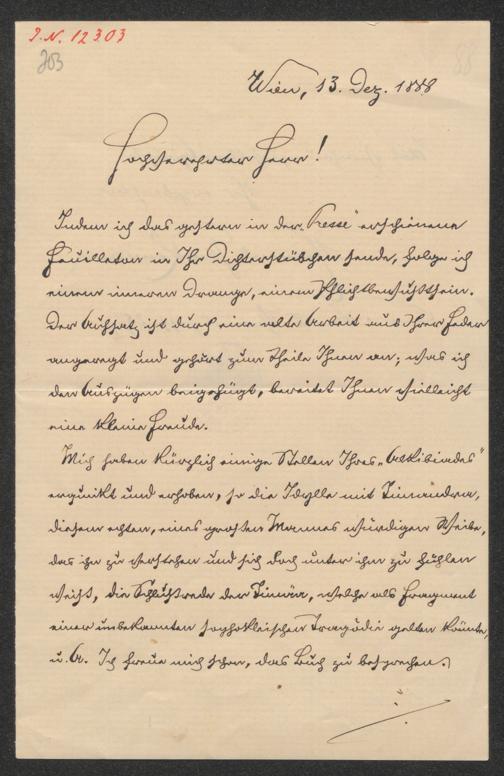 J. N. 12303
203
Wien, 13. Dez. 1888
Hochverehrter Herr!
Indem ich das gestern in der „Presse“ erschienene
Feuilleton in Ihr Dichterstübchen sende, folge ich
einem inneren Drange, einem Pflichtbewußtsein.
Der Aufsatz ist durch eine alte Arbeit aus Ihrer Feder
angeregt und gehört zum Theile Ihnen an; was ich
den Auszügen beigefügt, bereitet Ihnen vielleicht
eine kleine Freude.
Mich haben kürzlich einige Stellen Ihres „Alkibiades“
erquickt und erhoben, so die Idylle mit Timandra,
diesem echten, eines großen Mannes würdigen Weibe,
das ihn zu verstehen und sich doch unter ihm zu fühlen
weiß, die Schlußrede der Timäa, welche als Fragment
einer unbekannten sophokleischen Tragödie gelten könnte,
u. A. Ich freue mich schon, das Buch zu besprechen.